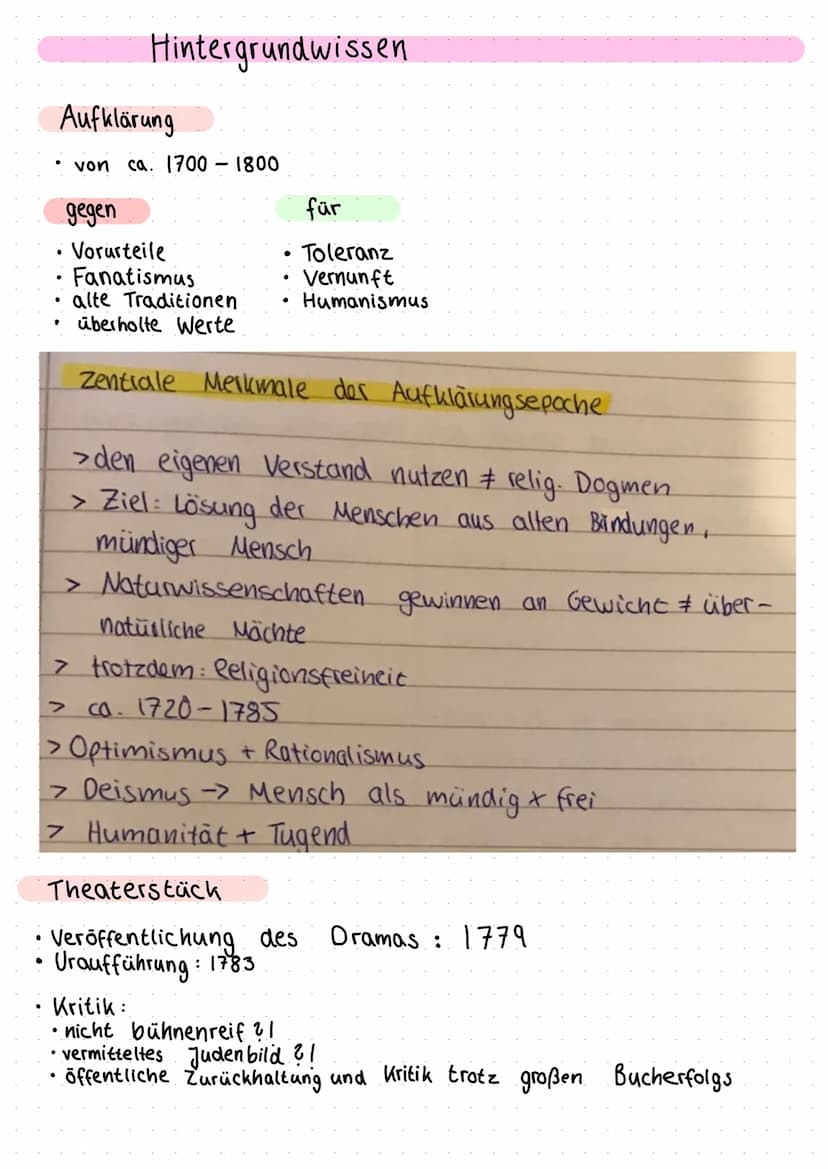 Hintergrundwissen
Aufklärung
• von ca. 1700 – 1800
gegen
• Vorurteile
• Fanatismus
• alte Traditionen
• überholte Werte
für
• Toleranz
• Vernunft
• Humanismus
Zentrale Merkmale der Aufklärungsepoche
> den eigenen Verstand nutzen ≠ relig. Dogmen
> Ziel: Lösung der Menschen aus alten Bindungen,
mündiger Mensch
> Naturwissenschaften gewinnen an Gewicht ≠ über-
natürliche Mächte
> trotzdem: Religionsfreiheit
> ca. 1720 – 1785
> Optimismus + Rationalismus
> Deismus -> Mensch als mündig + frei
> Humanität + Tugend
Theaterstück
• Veröffentlichung des Dramas : 1779
• Uraufführung : 1783
• Kritik :
• nicht bühnenreif ?!
• vermitteltes Judenbild ?!
• öffentliche Zurückhaltung und Kritik trotz großen Bucherfolgs